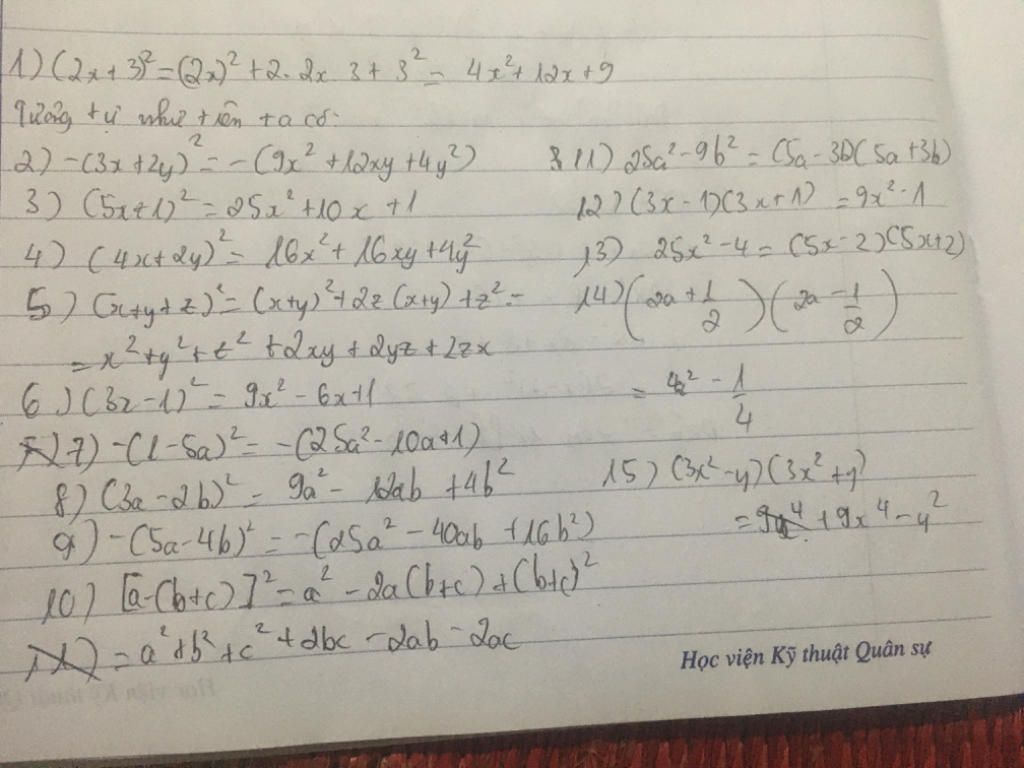 1) (2x+3)² = (2x)² + 2. 2x 3 + 3² = 4x² + 12x + 9
Tương tự như trên ta có:
2) -(3x+2y)² = -(9x² + 12xy + 4y²)
3) (5x+1)² = 25x² + 10x + 1
4) (4x+2y)² = 16x² + 16xy + 4y²
5) (x+y+z)² = (x+y)² + 2z(x+y) + z² =
= x² + y² + z² + 2xy + 2yz + 2zx
6) (3x-1)² = 9x² - 6x + 1
7) -(1-5a)² = -(25a² - 10a + 1)
8) (3a-2b)² = 9a² - 12ab + 4b²
9) -(5a-4b)² = -(25a² - 40ab + 16b²)
10) [a-(b+c)]² = a² - 2a(b+c) + (b+c)²
= a² + b² + c² + 2bc - 2ab - 2ac
11) 25a² - 9b² = (5a-3b)(5a+3b)
12) (3x-1)(3x+1) = 9x² - 1
13) 25x² - 4 = (5x-2)(5x+2)
14) (2a + 1/2)(2a - 1/2)
= 4a² - 1/4
15) (3x²-y)(3x²+y)
= + 9x⁴ - y²
Học viện Kỹ thuật Quân sự